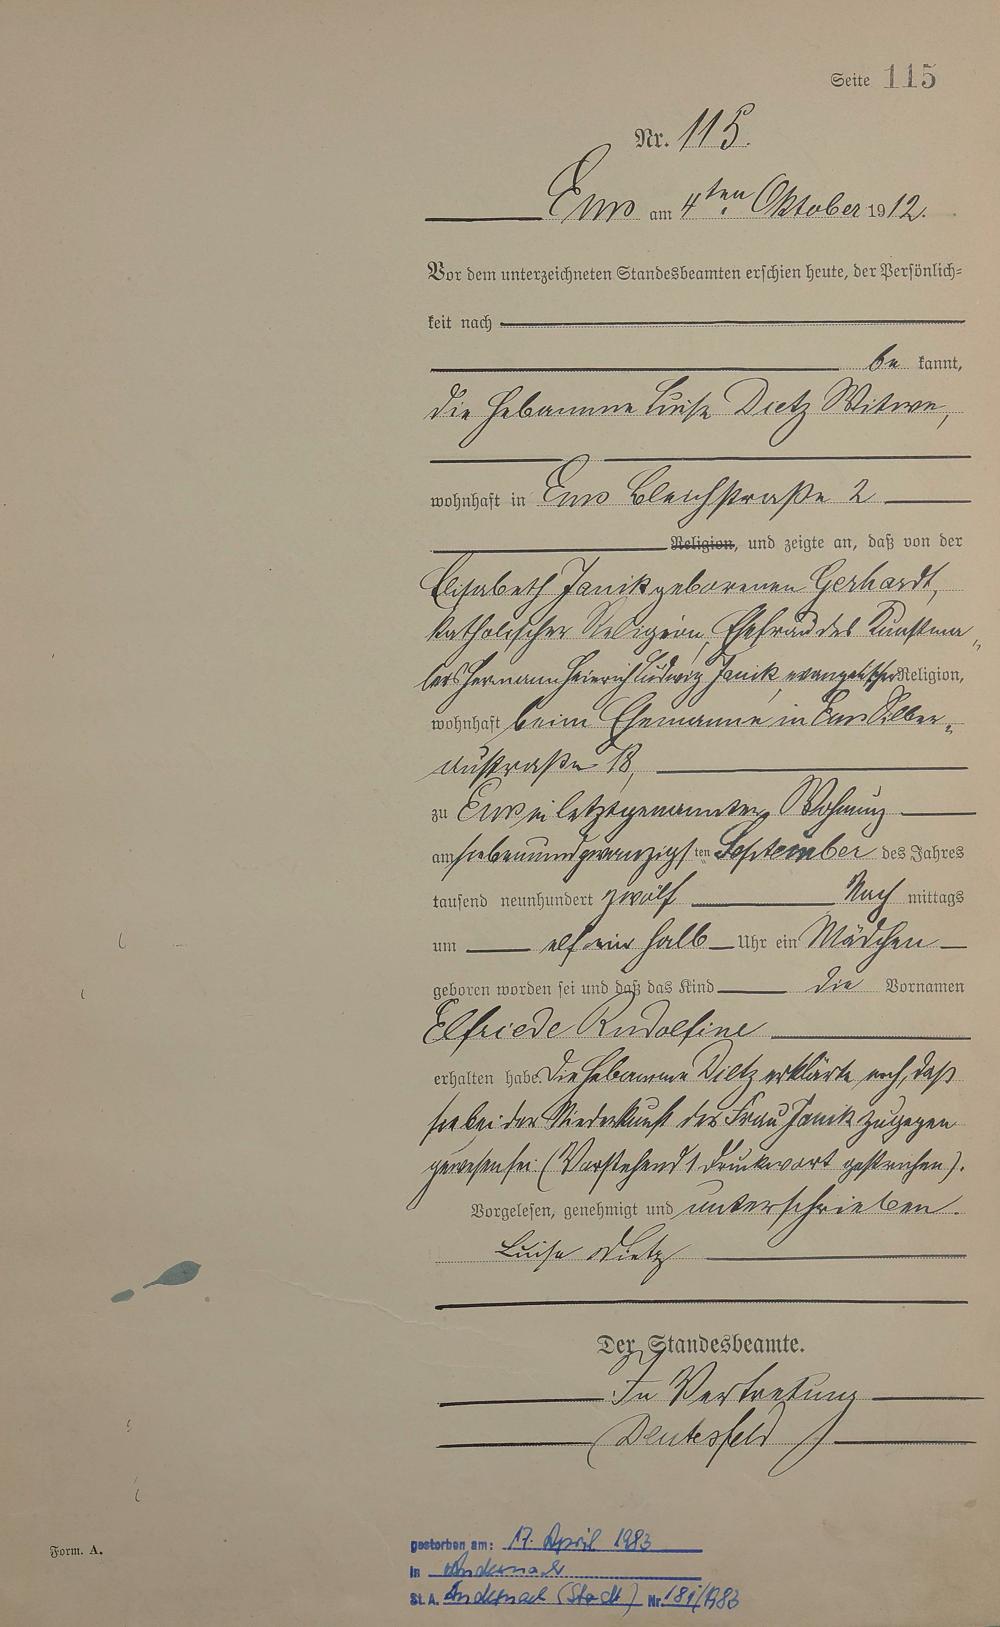 Seite 115
Nr. 115.
Ems am 4ten Oktober 1912.
Vor dem unterzeichneten Standesbeamten erschien heute, der Persönlich=
keit nach
be kannt,
die Hebamme Luise Dietz Witwe,
wohnhaft in Ems Bleichstraße 2
Religion, und zeigte an, daß von der
Elisabeth Janik geborenen Gerhardt,
katholischer Religion, Ehefrau des Kunstma„
lers Hermann Heinrich Ludwig Janik, evangelischer Religion,
wohnhaft beim Ehemanne in Ems Silber„
austraße 18,
zu Ems in letztgenannter Wohnung
am siebenundzwanzigsten September des Jahres
tausend neunhundert zwölf Nach mittags
um elf ein halb Uhr ein Mädchen
geboren worden sei und daß das Kind die Vornamen
Elfriede Rudolfine
erhalten habe. Die Hebamme Dietz erklärte noch, daß
sie bei der Niederkunft der Frau Janik zugegen
gewesen sei (Vorstehend 1 Druckwort gestrichen).
Vorgelesen, genehmigt und unterschrieben.
Luise Dietz
Der Standesbeamte.
In Vertretung
Form. A.
gestorben am: 17. April 1983
in Andernach
St. A. Andernach (Stadt) Nr. 181/1983